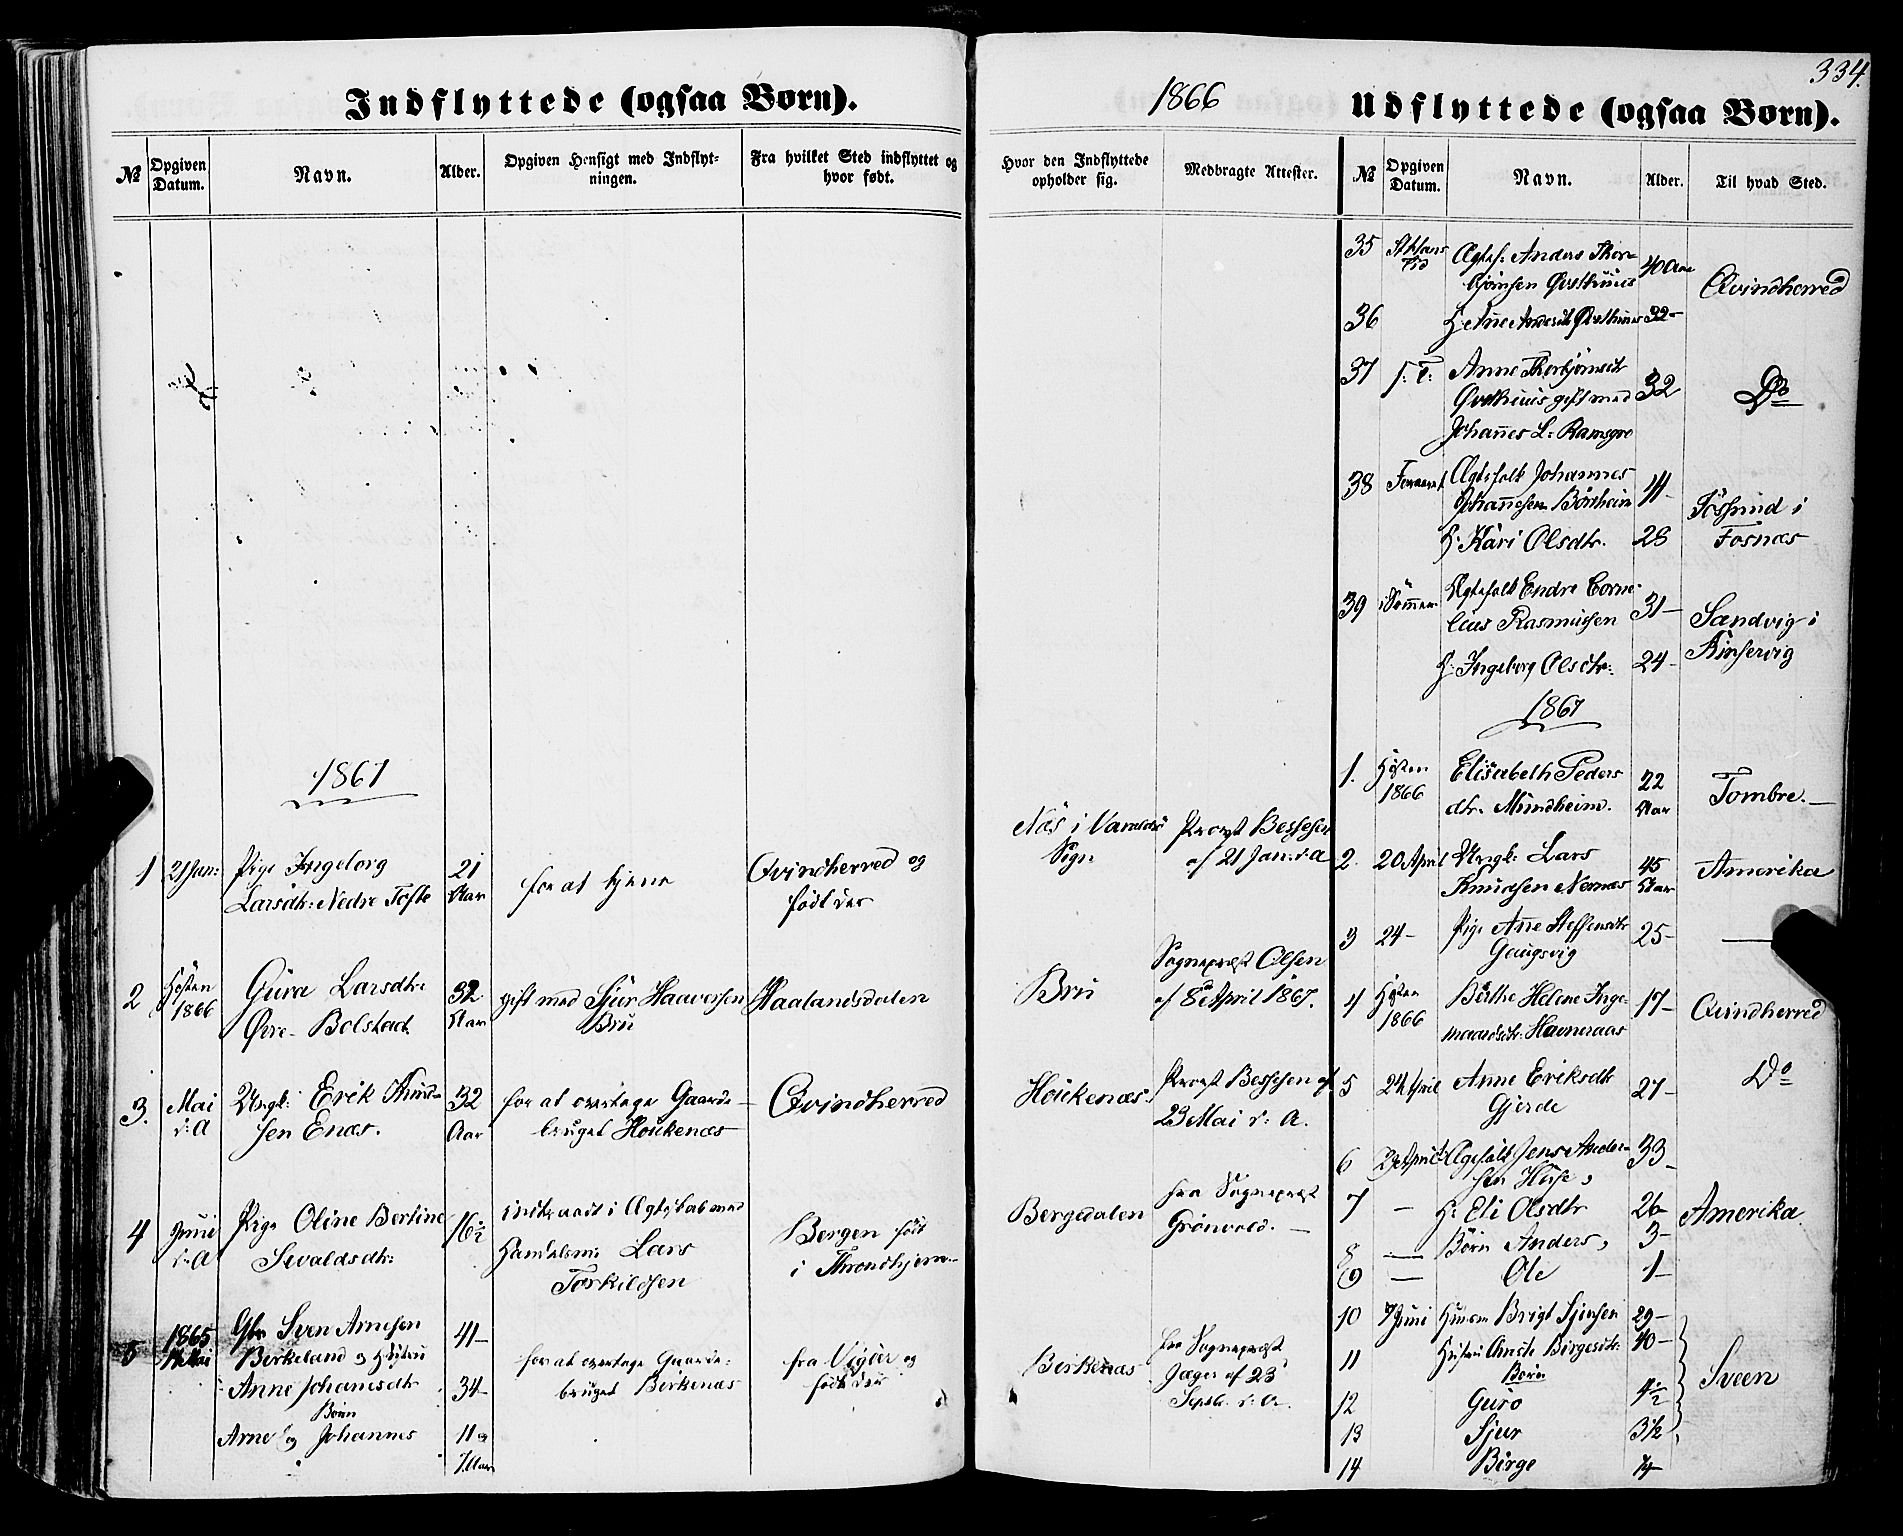 334.
Indflyttede (ogsaa Børn).
№
Opgiven Datum.
Navn.
Alder.
Opgiven Hensigt med Indflyt-
ningen.
Fra hvilket Sted indflyttet og
hvor født.
1867
1 21 Jan: Pige Ingeborg 21 for at tjene Qvindherred og
Larsdtr: Nedre Tofte Aar født der
2 Høsten 1866 Guro Larsdtr. 32 gift med Sjur Haaversen Haalandsdalen
Øvre Bolstad Aar Bru
3. Mai Ungk: Erik Knud- 32 for at overtage Gaards- Qvindherred
d: A sen Enæs. Aar bruget Houkenæs
4 Juni Pige Oline Bertine 16½ indtraadt i Ægteskab med Bergen født
d: A Sivaldsdtr: Handelsm: Lars i Throndhjem
Torkildsen
5 1865 Gbr Sven Arnesen 41
14 Mai Birkeland og Hustru for at overtage Gaards- fra Vigør og
Anne Johansdtr 34 bruget Birkenæs født der
Børn
Arne og Johannes 11 og
7 Aar
1866
Udflyttede (ogsaa Børn).
Hvor den Indflyttede
opholder sig.
Medbragte Attester.
№
Opgiven Datum.
Navn.
Alder.
Til hvad Sted.
Næs i Varaldsø Provst Bessesen
Sogn af 21 Jan: d: A
Bru Sognepræst Olsen
af 8de April 1867.
Houkenæs. Provst Bessesen af
23 Mai d: A.
Bergsdalen fra Sognepræst
Grönvold. —
Birkenæs fra Sognepræst
Jæger af 23
Septb. d: A.
35 Ægtef: Anders Thor- 40 Aar
bjørnsen Østhuus Qvindherred
36 H: Østhuus 32
37 Anne Thorbjørnsdtr
Østhuus gift med 32 Do
Johannes L: Ramsgro
38 Ægtefolk Johannes
Johannesen Børsheim
H: Kari Olsdtr. 28 Fosnæs
39 i Sommer Ægtefolk Endre Corne-
lius Rasmussen 31 Sandvig i
H: Ingeborg Olsdtr: 24 Kinservig
1867
1. Høsten Elisabeth Peders 22
1866 dtr. Mundheim. Aar Tombre.
2. 20 April Ungk: Lars 45 Amerika
Knudsen Nernæs Aar
3 24 Pige Anne Steffensdtr 25 —
Gaugsvig
4 Høsten Birthe Helene Inge- 17
1866 maardsdtr. Havneraas Qvindherred
5 24 April Anne Eriksdtr 27 Do
Gjerde
6 April Ægtefolk Jens Ander- 33
sen Huse,
7 — H: Eli Olsdtr 26 Amerika
8 — Børn Anders, 3
9 — Ole 1
10 7 Juni Husm Brigt Sjursen 29
11 Hustru Birgesdtr: 40
Børn
12 Guro 4½ Sveen
13 Sjur 3½
14 Birge